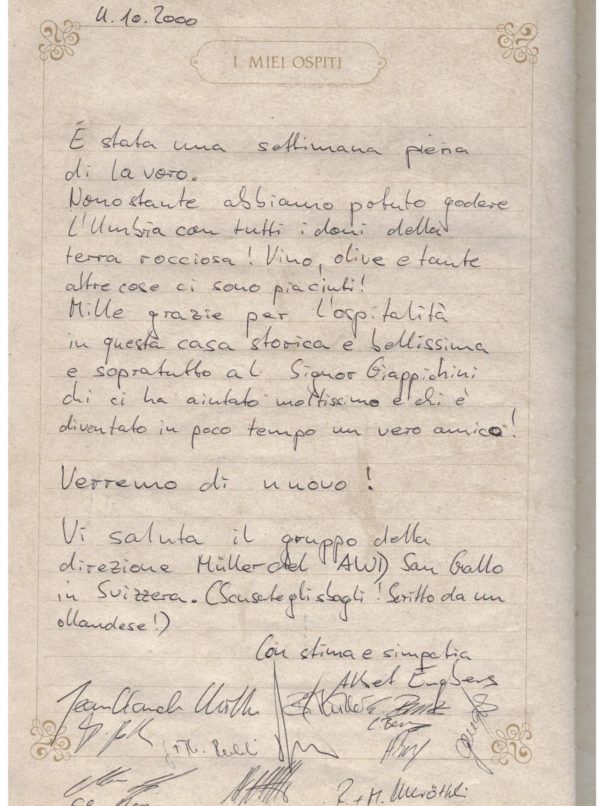 11.10.2000
I MIEI OSPITI
É stata una settimana piena
di lavoro.
Nonostante abbiamo potuto godere
l'Umbria con tutti i doni della
terra rocciosa! Vino, olive e tante
altre cose ci sono piaciuti!
Mille grazie per l'ospitalità
in questa casa storica e bellissima
e sopratutto al Signor Giappichini
chi ci ha aiutato moltissimo e chi è
diventato in poco tempo un vero amico!
Verremo di nuovo!
Vi saluta il gruppo della
direzione Müller del AWD San Gallo
in Svizzera. (Scusate gli sbagli! Scritto da un
ollandese!)
Con stima e simpatia
Engbers
R. + M.